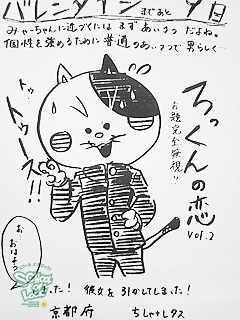 バレンタインまであと 9日
みゃーちゃんに近づくには まず あいさつ だよね。
個性を強めるために 普通のあいさつで男らしく…
ろっくんの恋
vol.2
お題完全無視!!
トゥ
トゥース!!
お
おはよう
しました! 彼女を引かしてしました!
京都府 ちしゃ+レタス